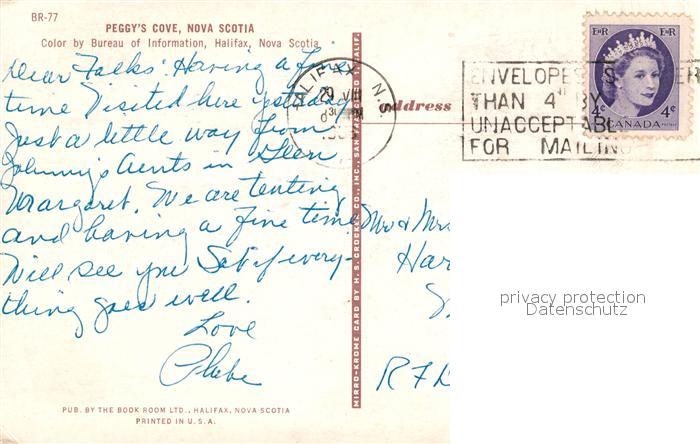 BR-77
PEGGY'S COVE, NOVA SCOTIA
Color by Bureau of Information, Halifax, Nova Scotia
Dear Folks: Having a fine
time Visited here yesterday
Just a little way from
Johnny's Aents in Glen
Margaret. We are tenting
and having a fine time
Will see you Sat if every-
thing goes well.
Love
Phebe
PUB. BY THE BOOK ROOM LTD., HALIFAX, NOVA SCOTIA
PRINTED IN U.S.A.
MIRRO-KROME CARD BY H.S. CROCKER CO., INC., SAN FRANCISCO 1, CALIF.
HALIFAX N.S.
VIII
PM
Address
ENVELOPES
THAN 4" BY
UNACCEPTABLE
FOR MAILING
E II R E II R
4¢ 4¢
CANADA
POSTES POSTAGE
Mr & Mrs
Har
RFD
privacy protection
Datenschutz